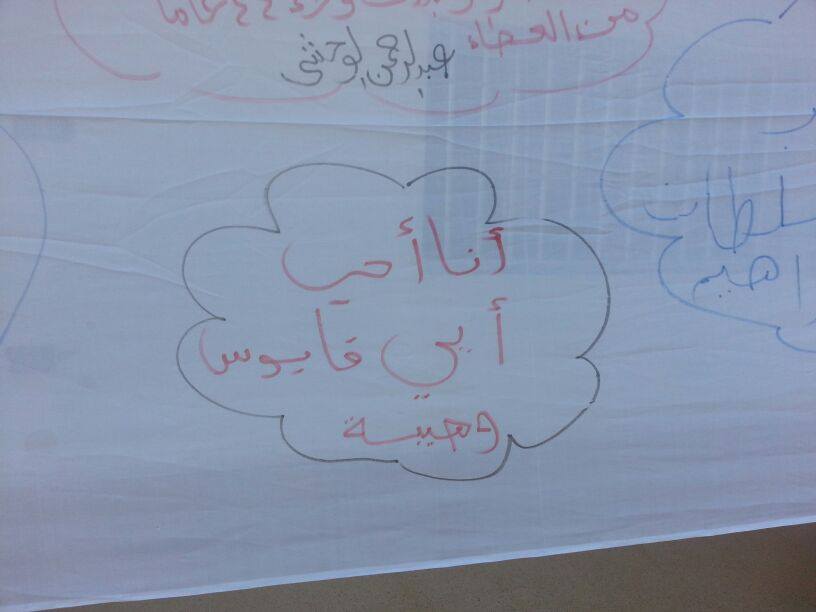 ٤٤ عاما
من العطاء
عبدالرحمن الوحشي
أنا أحب
أبي قابوس
وهيبة
سلطان